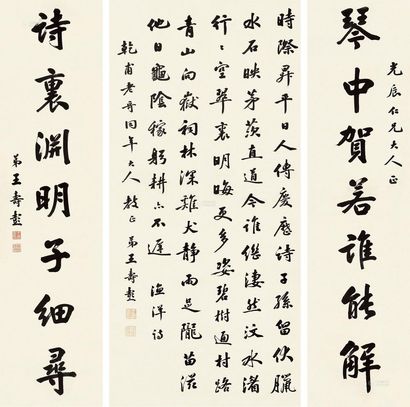 光宸仁兄大人正
琴中賀若誰能解
時際昇平日人傳慶曆詩子孫留伏臘
水石映茅茨直道今誰繼淒然汶水湄
行行空翠裏明晦更多姿碧樹通村路
青山向嶽祠林深雞犬靜雨足隴苗滋
他日龜陰稼躬耕亦不遲 漁洋詩
乾甫老哥同年大人教正 弟王壽彭
詩裏淵明子細尋
弟王壽彭